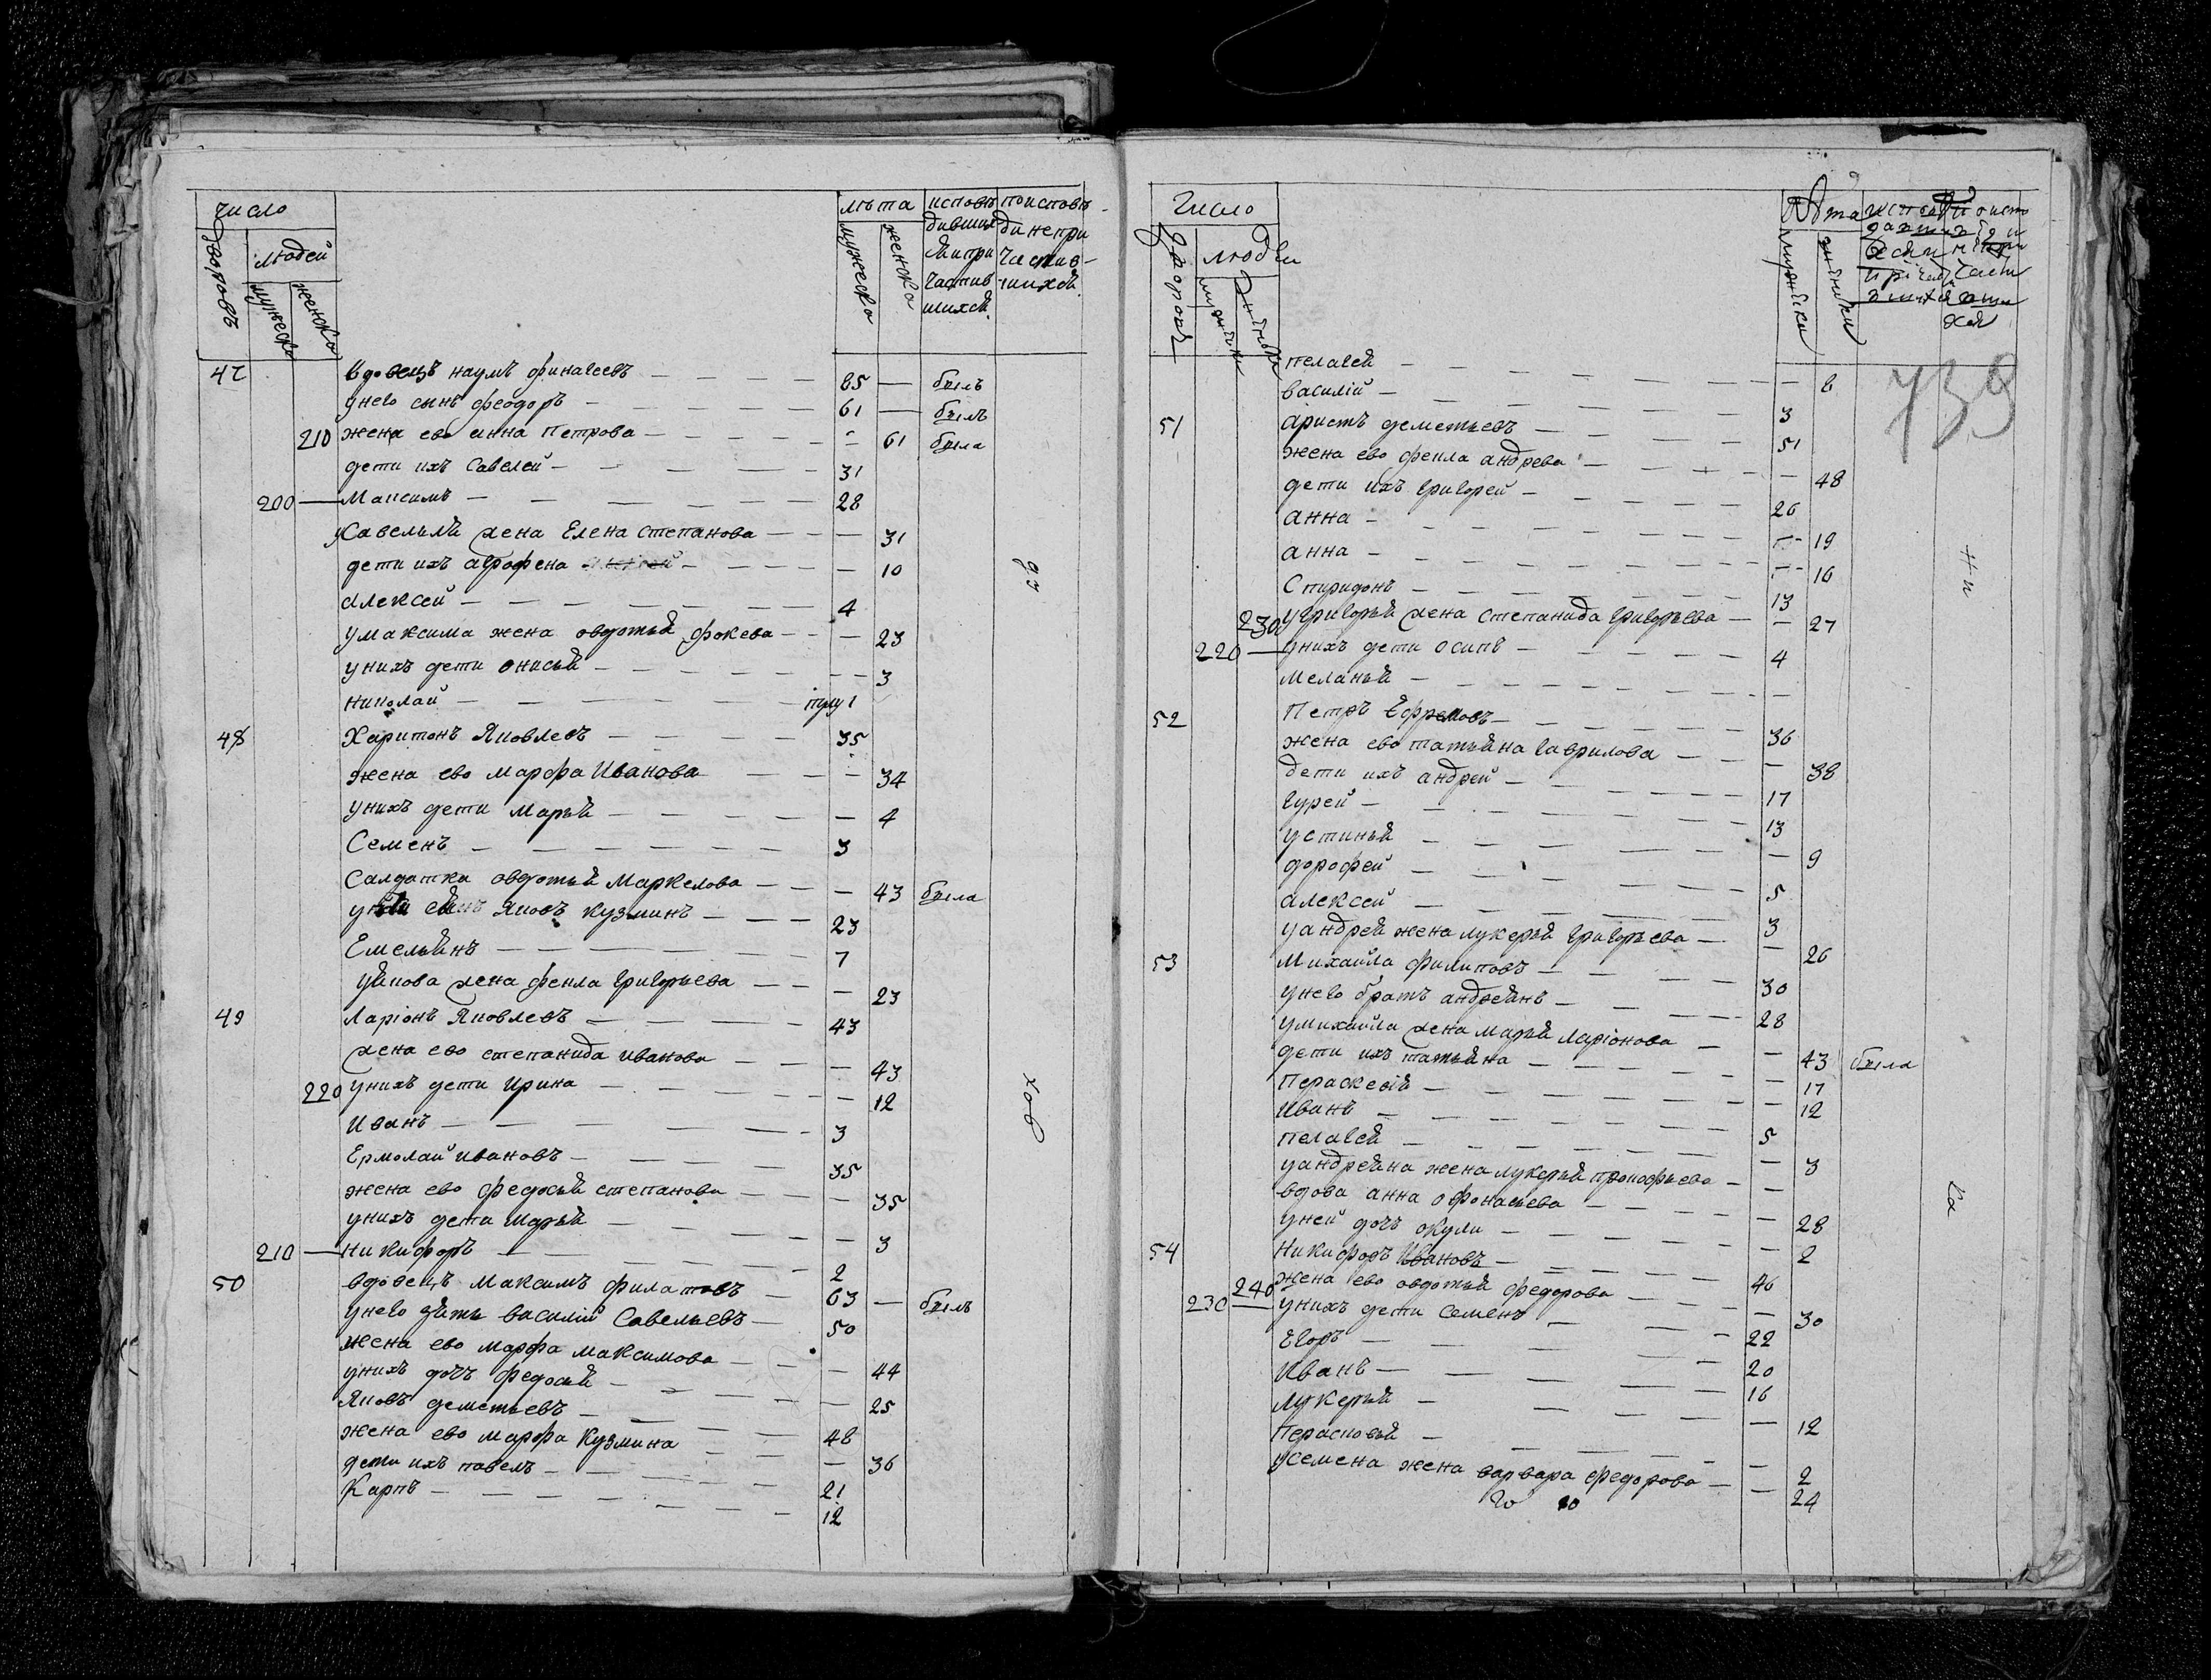 число
дворовъ
людей
мужеска
женска
лѣта
мужеска
женска
исповѣ
дившия
ся и при
частив
шихся
по исповѣ
ди непри
частив
шихся
47 вдовецъ наумъ финагеевъ — 85 — былъ
унево сынъ феодоръ — 61 — былъ
210 жена ево анна Петрова — 61 была
дети ихъ Савелей — 31
200 Максимъ — 28
уСавельля жена Елена степанова — 31
дети ихъ аграфена — 10
алексей — 4
умаксима жена овдотья фокева — 23
унихъ дети онисья — 3
николай — полу 1
48 Харитонъ Яковлевъ — 35
жена ево марфа Иванова — 34
унихъ дети Марья — 4
Семенъ — 3
Салдатка овдотья Маркелова — 43 была
унеи сынъ Яковъ кузминъ — 23
Емельянъ — 7
уякова жена фекла григорьева — 23
49 Ларіонъ Яковлевъ — 43
жена ево степанида иванова — 43
220 унихъ дети Ирина — 12
Иванъ — 3
Ермолай ивановъ — 35
жена ево федосья степанова — 35
унихъ дети марья — 3
210 никифоръ — 2
50 вдовецъ максимъ филатовъ — 63 — былъ
унево зять василий Савельевъ — 50
жена ево марфа максимова — 44
унихъ дочь федосья — 25
Яковъ деметьевъ — 48
жена ево марфа кузмина — 36
дети ихъ павелъ — 21
Карпъ — 12
дз
хов
Число
дворовъ
людеи
мужески
женски
лѣта
мужески
женски
739
пелагея — 6
василій — 3
51 аристъ деметьевъ — 51
жена ево фекла андрева — 48
дети ихъ григорей — 26
анна — 19
анна — 16
Спиридонъ — 13
230 угригорья жена степанида григорьева — 27
220 унихъ дети осипъ — 4
меланья —
52 Петръ Ефремовъ — 36
жена ево татьяна гаврилова — 38
дети ихъ андрей — 17
гурей — 13
устинья — 9
дорофей — 5
алексей — 3
уандрея жена лукерья григорьева — 26
53 Михаила филиповъ — 30
унево братъ андреянъ — 28
умихаила жена марья ларіонова — 43 была
дети ихъ татьяна — 17
Пераскевія — 12
иванъ — 5
пелагея — 3
уандреяна жена лукерья прокофьева —
вдова анна офонасьева — 28
уней дочь окули — 2
54 Никифоръ Ивановъ — 46
240 жена ево овдотья федорова — 30
230 унихъ дети Семенъ — 22
Егоръ — 20
Иванъ — 16
лукерья — 12
Перасковья — 2
уСемена жена варвара федорова — 24
20 20
ни
га